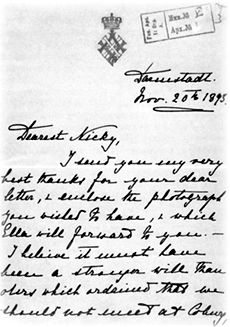 Darmstadt.
Nov. 20th 1893.
Dearest Nicky,
I send you my very
best thanks for your dear
letter, & enclose the photograph
you wished to have, & which
Ella will forward to you. —
I believe it must have
been a stronger will than
ours which ordained that we
should not meet at Coburg,